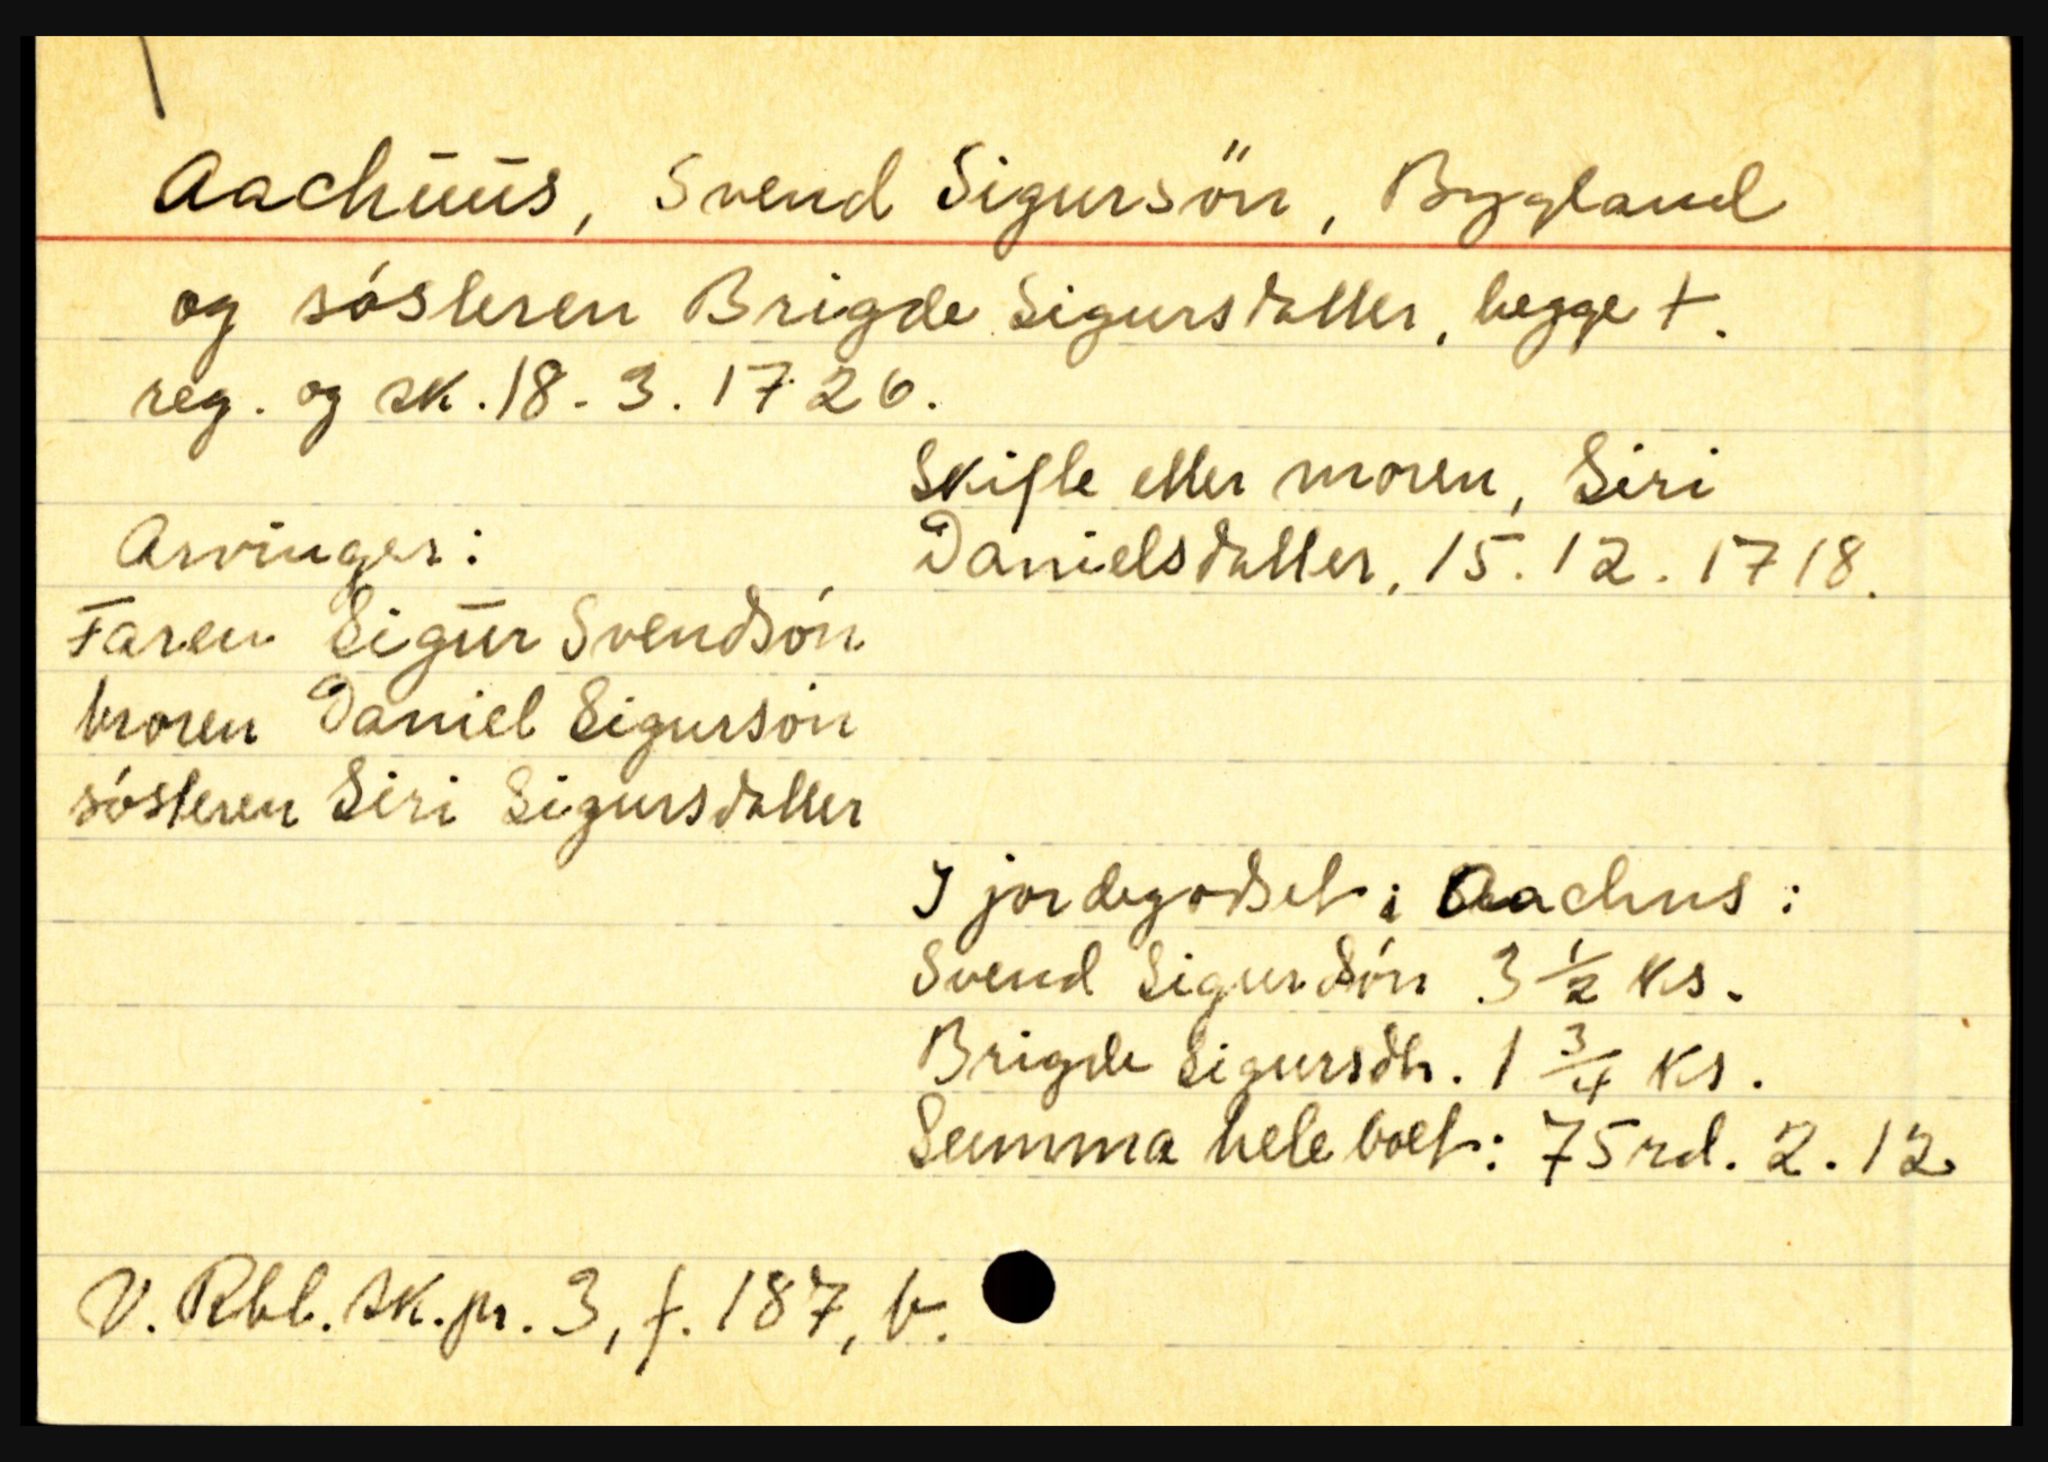 Aachūūs, Svend Sigursön, Bygland
og sósteren Brigde Sigursdatter, begge †.
reg. og sk. 18.3.1726.
Skifte etter moren, Siri
Danielsdatter, 15.12.1718.
Arvinger:
Faren Sigūr Svendsón
broren Daniel Sigursón
sósteren Siri Sigursdatter
I jordegodset i Aachus:
Svend Sigurdsón 3 1/2 ks.
Brigde Sigursdtr. 1 3/4 ks.
Summa hele boet: 75 rd. 2. 12
V. Rbl. sk. pr. 3, f. 187, b.